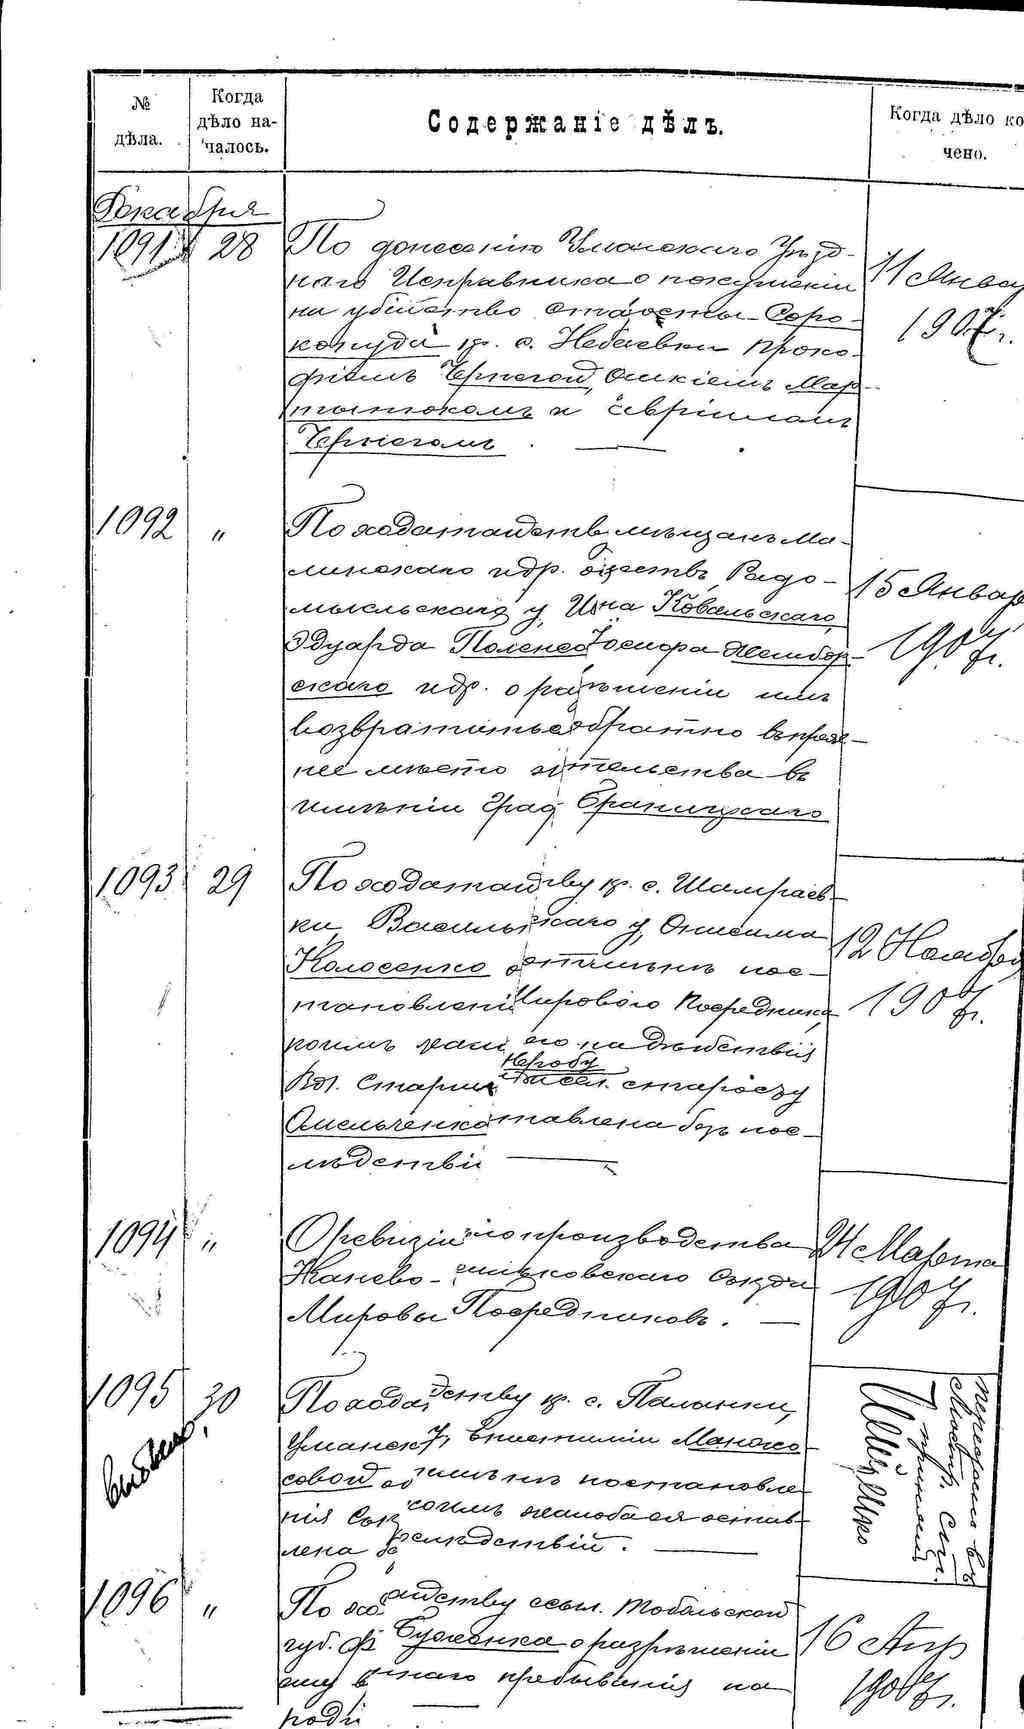 № дѣла.
Когда дѣло началось.
Содержаніе дѣлъ.
Когда дѣло ко
чено.
Декабря
1091 28
По донесенію Уманскаго Уѣзд-
наго Исправника о покушеніи
на убійство старосты Соро-
копуда кр. с. Небаевки Проко-
фіемъ Чернегой, Мар-
тынюкомъ и Гавріиломъ
Чернегомъ.
11 Январ
1907 г.
1092 "
По ходатайств мѣщанъ Ма-
линскаго и др. обществъ, Радо-
мысльскаго у, Ивна Ковальскаго,
Эдуарда Поленса Іосифа
скаго и др. о разрѣшеніи имъ
возвратиться обратно въ преж-
нее мѣсто жительства въ
имѣніи Граф Браницкаго
15 Январ
1907 г.
1093 29
По ходатайству кр. с. Шамраев-
ки, Васильк скаго у, Онисима
Колосенко о отмѣнѣ пос-
тановлені Мирового Посредника,
коимъ жал его на дѣйствія
Вол. Старши сел. старосту
Омельченко оставлена безъ пос-
лѣдствій
12 Ноябр
1907 г.
1094 "
О ревизіи дѣлопроизводства
Канево- Съѣзда
Мировы Посредниковъ.
24 Марта
1907 г.
1095 30
выбыло,
По хода йству кр. с. Паланки,
Уманск у,
совой об отмѣнѣ постановле
нія Съѣз коимъ жалоба ея остав-
лена без послѣдствій.
Передано въ
1096 "
По хода тайству ссыл. Тобольской
губ. Ф Бужонка о разрѣшеніи
ему в наго пребыванія на
роди
16 Апр
1907 г.